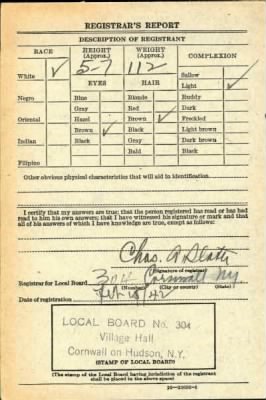 REGISTRAR'S REPORT
DESCRIPTION OF REGISTRANT
RACE HEIGHT (Approx.) WEIGHT (Approx.) COMPLEXION
White ✓ 5-7 112 Sallow
Light ✓
EYES HAIR
Negro Blue Blonde Ruddy
Gray Red Dark
Oriental Hazel Brown ✓ Freckled
Brown ✓ Black Light brown
Indian Black Gray Dark brown
Bald Black
Filipino
Other obvious physical characteristics that will aid in identification
I certify that my answers are true; that the person registered has read or has had
read to him his own answers; that I have witnessed his signature or mark and that
all of his answers of which I have knowledge are true, except as follows:
Chas. A
(Signature of registrar)
Registrar for Local Board 304 Cornwall NY
(Number) (City or county) (State)
Date of registration Feb 16/42
LOCAL BOARD No. 304
Village Hall
Cornwall on Hudson, N.Y.
(STAMP OF LOCAL BOARD)
(The stamp of the Local Board having jurisdiction of the registrant
shall be placed in the above space)